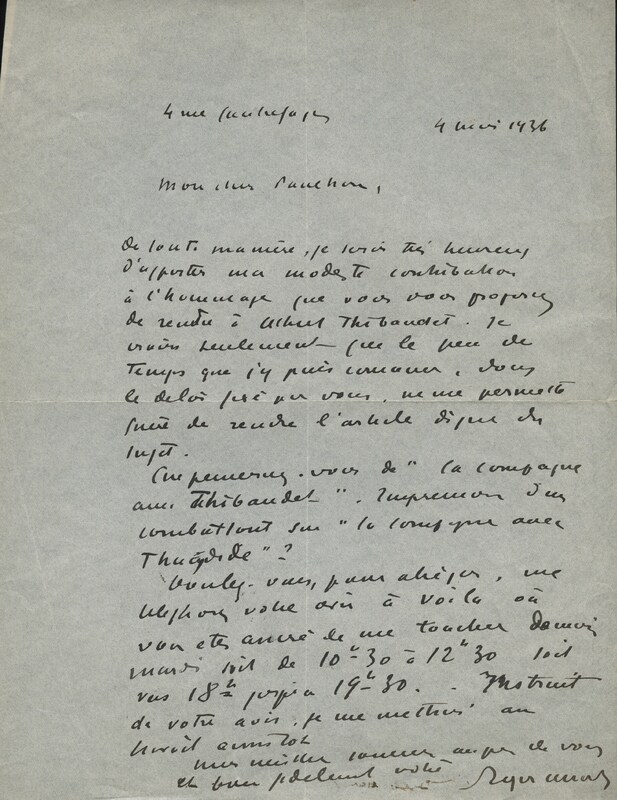 4 rue
4 mai 1936
Mon cher Paulhan,
De toute manière, je serai très heureux
d'apporter ma modeste contribution
à l'hommage que vous vous proposez
de rendre à Albert Thibaudet. Je
crains seulement que le peu de
temps que j'y puis consacrer, dans
le délai fixé par vous, ne me permette
guère de rendre l'article digne du
sujet.
Que penseriez-vous de " La campagne
avec Thibaudet ". Impression d'un
combattant sur " la campagne avec
Thucydide " ?
Voulez-vous, pour abréger, me
téléphoner votre avis à Voilà où
vous êtes assuré de me toucher demain
mardi soit de 10h30 à 12h30 soit
vers 18h jusqu'à 19h30. - Instruit
de votre avis, je me mettrai au
travail aussitôt
mes meilleurs auprès de vous
et bien fidèlement votre